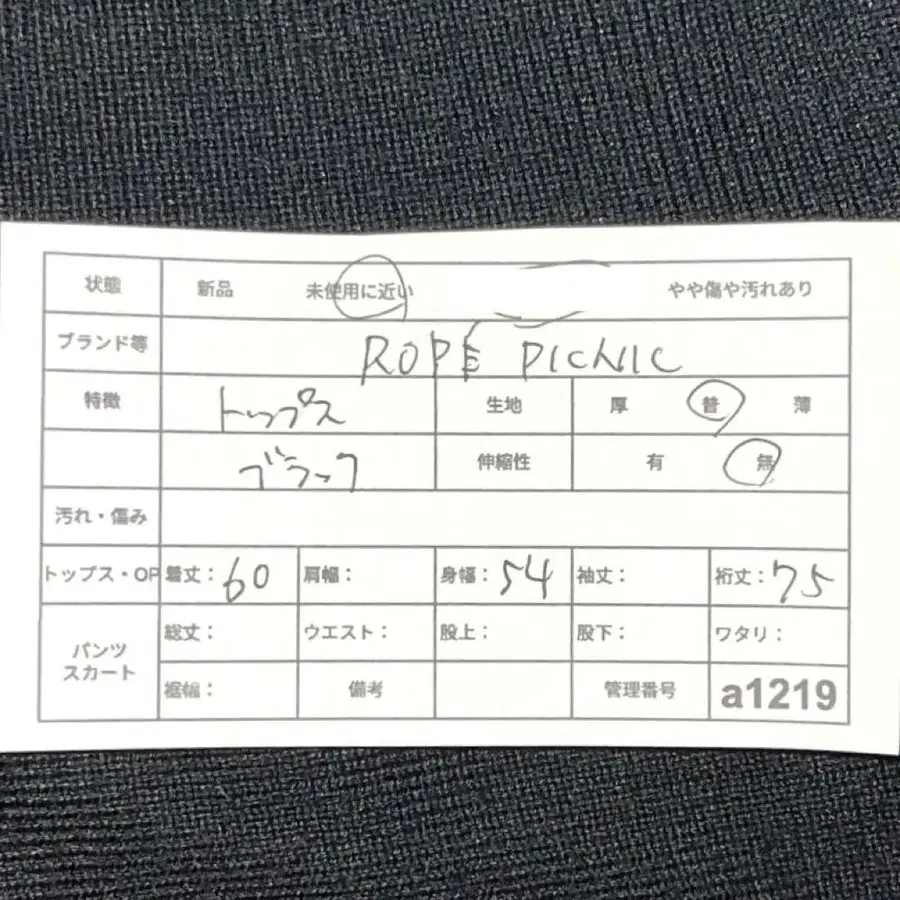 状態 新品 未使用に近い やや傷や汚れあり
ブランド等 ROPE PICNIC
特徴 トップス 生地 厚 普 薄
ブラック 伸縮性 有 無
汚れ・傷み
トップス・OP 着丈：60 肩幅： 身幅：54 袖丈： 裄丈：75
パンツ 総丈： ウエスト： 股上： 股下： ワタリ：
スカート 裾幅： 備考 管理番号 a1219